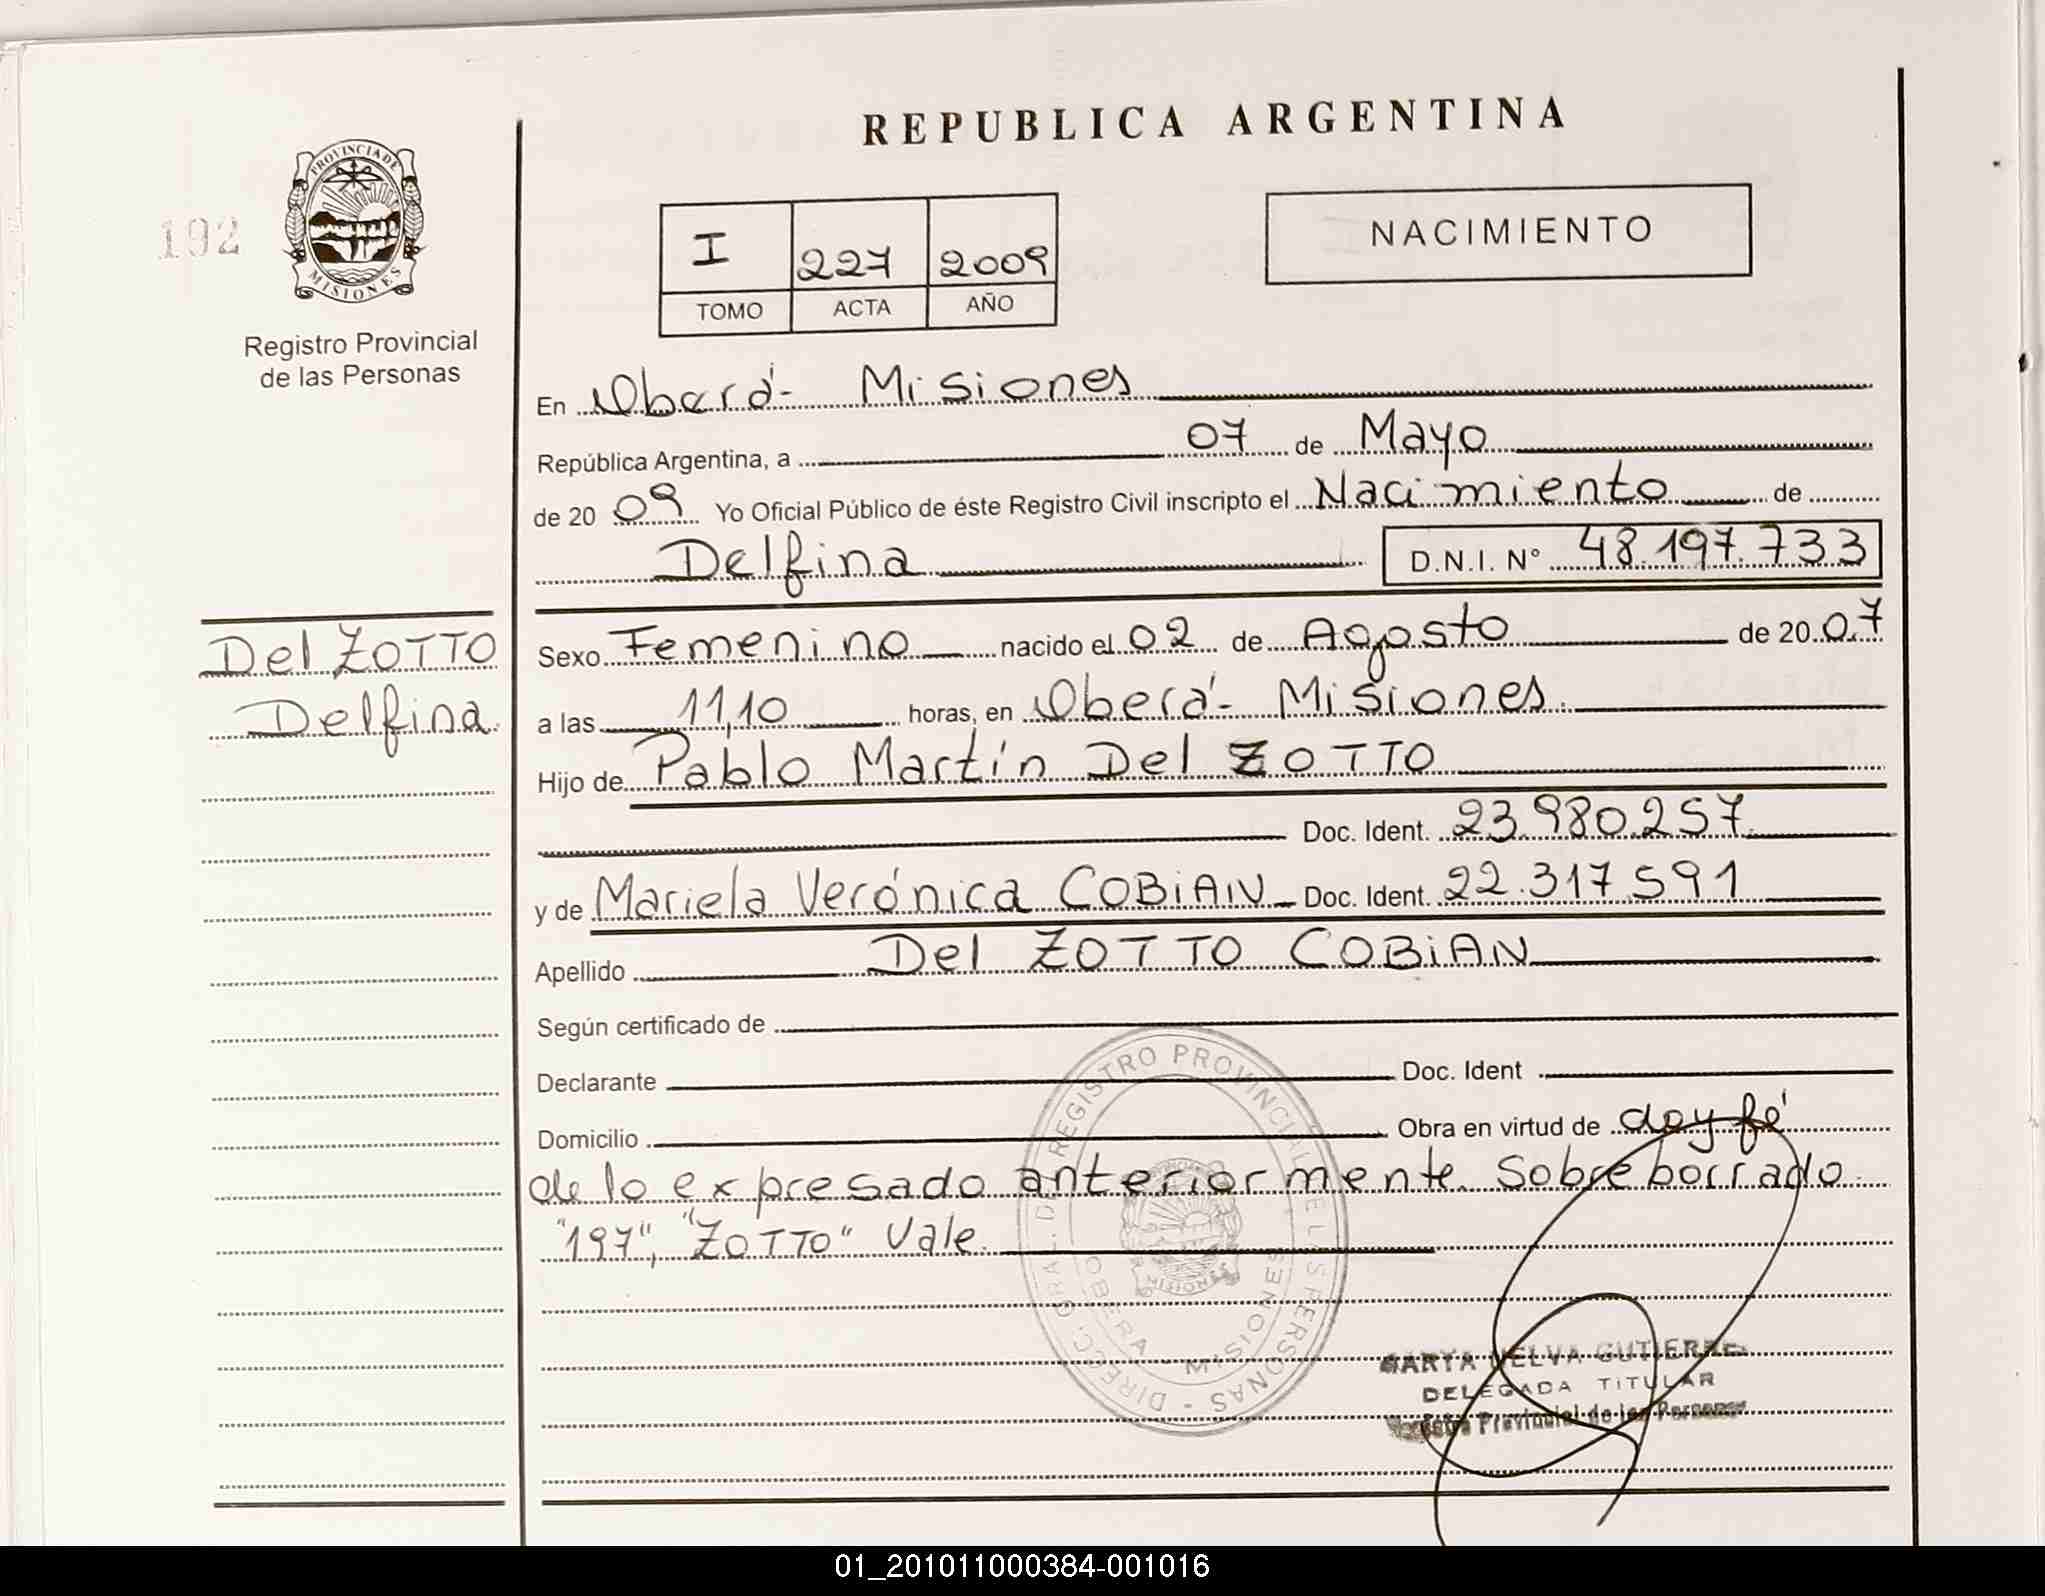 REPUBLICA ARGENTINA
192
PROVINCIA DE
MISIONES
Registro Provincial
de las Personas
I 227 2009
TOMO ACTA AÑO
NACIMIENTO
En Oberá - Misiones
República Argentina, a 07 de Mayo
de 20 09 Yo Oficial Público de éste Registro Civil inscripto el Nacimiento de
Delfina D.N.I. N° 48.197.733
Del ZOTTO
Delfina
Sexo Femenino nacido el 02 de Agosto de 20 07
a las 11,10 horas, en Oberá - Misiones.
Hijo de Pablo Martín Del ZOTTO
Doc. Ident. 23.980.257
y de Mariela Verónica COBiAN Doc. Ident. 22.317.591
Apellido Del ZOTTO COBiAN
Según certificado de
Declarante Doc. Ident
Domicilio Obra en virtud de doy fé
de lo expresado anteriormente. Sobre borrado
"197", "ZOTTO" Vale.
DIRECC. GRAL. DE REGISTRO PROVINCIAL DE LAS PERSONAS -
OBERA - MISIONES
MISIONES
MARTA NELVA GUTIERREZ
DELEGADA TITULAR
Registro Provincial de las Personas
01_201011000384-001016